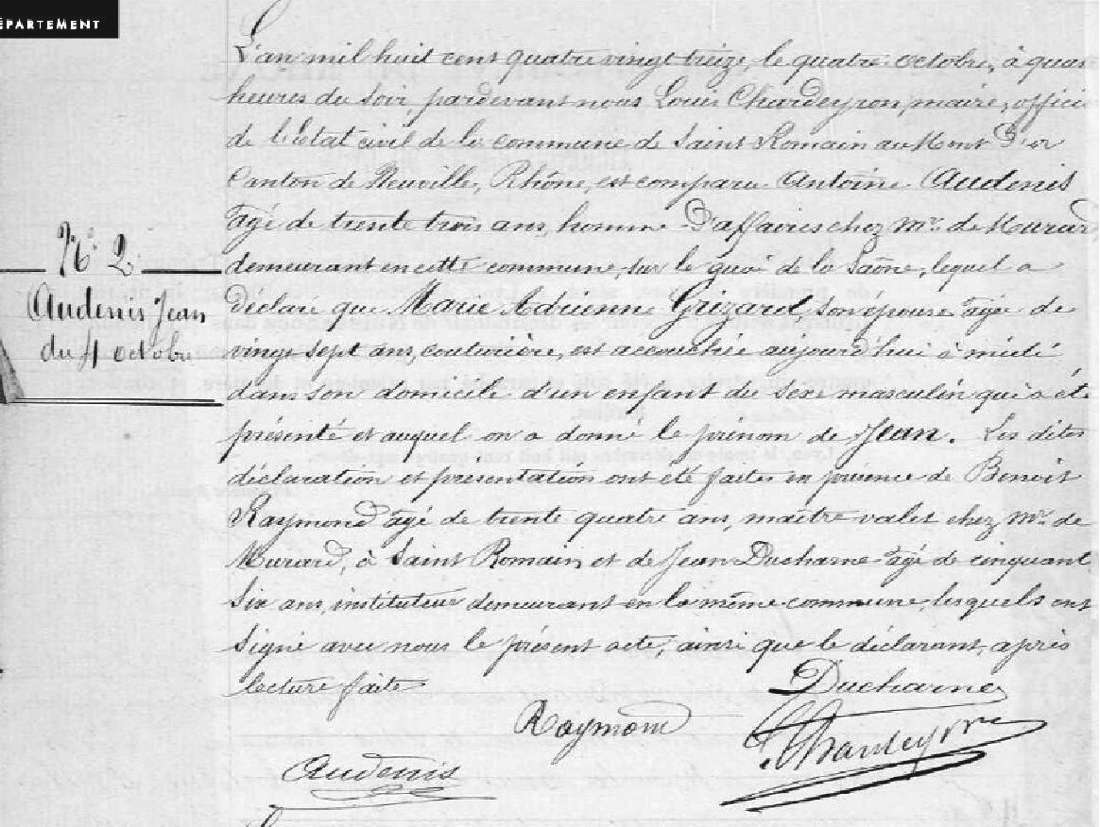 DÉPARTEMENT
L'an mil huit cent quatre vingt treize, le quatre octobre, à quatre
heures du soir, pardevant nous Louis Chardeyron, maire, officier
de l'Etat civil de la commune de Saint Romain au Mont D'or
Canton de Neuville, Rhône, est comparu Antoine Audenis
âgé de trente trois ans, homme D'affaires chez Mr. de Murard,
demeurant en cette commune, sur le quai de la Saône, lequel a
déclaré que Marie Adrienne Grizard, son épouse âgée de
vingt sept ans, couturière, est accouchée aujourd'hui à midi
dans son domicile d'un enfant du sexe masculin qui a été
présenté et auquel on a donné le prénom de Jean. Les dites
déclaration et présentation ont été faites en présence de Benoît
Raymond âgé de trente quatre ans, maître valet chez Mr. de
Murard, à Saint Romain, et de Jean Ducharne âgé de cinquante
six ans, instituteur demeurant en la même commune, lesquels ont
signé avec nous le présent acte, ainsi que le déclarant, après
lecture faite
N° 2
Audenis Jean
du 4 octobre
Ducharne
Raymond
Chardeyron
Audenis